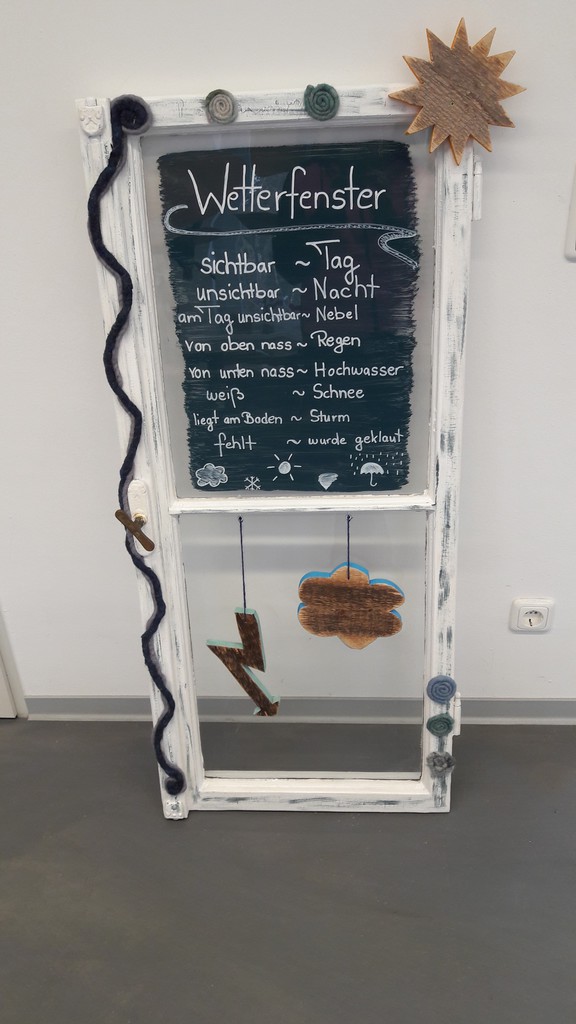 Wetterfenster
sichtbar ~ Tag
unsichtbar ~ Nacht
am Tag unsichtbar ~ Nebel
von oben nass ~ Regen
von unten nass ~ Hochwasser
weiß ~ Schnee
liegt am Boden ~ Sturm
fehlt ~ wurde geklaut